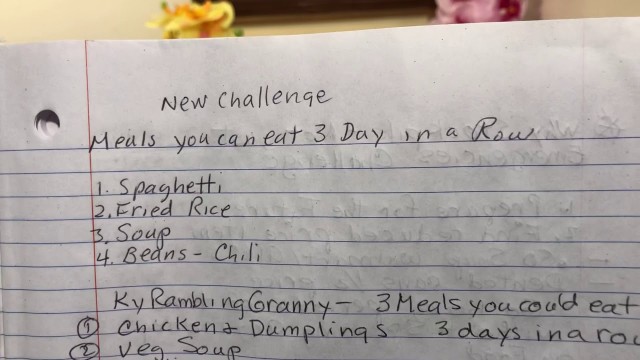 New Challenge
Meals you can eat 3 Day in a Row
1. Spaghetti
2. Fried Rice
3. Soup
4. Beans - Chili
Ky Rambling Granny - 3 Meals you could eat
① Chicken & Dumplings 3 days in a row
② Veg Soup